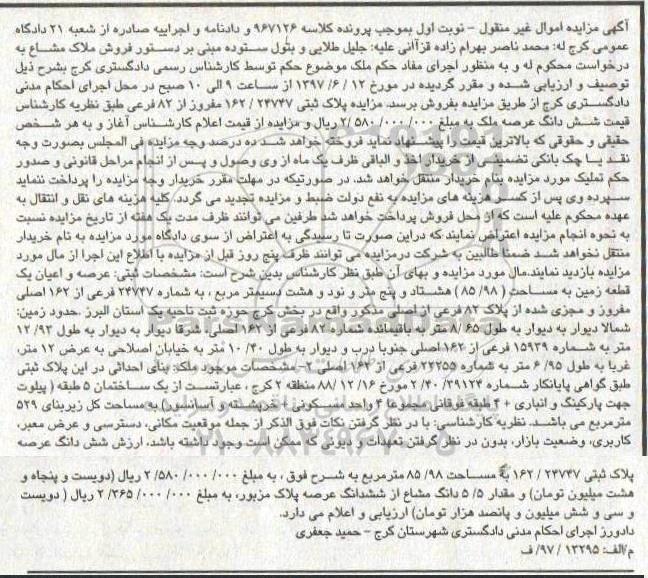 آگهی مزایده اموال غیر منقول - نوبت اول بموجب پرونده کلاسه ۹۶۷۱۲۶ و دادنامه و اجراییه صادره از شعبه ۲۱ دادگاه
عمومی کرج له: محمد ناصر بهرام زاده قزآانی علیه: جلیل طلایی و بتول ستوده مبنی بر دستور فروش ملاک مشاع به
درخواست محکوم له و به منظور اجرای مفاد حکم ملک موضوع حکم توسط کارشناس رسمی دادگستری کرج بشرح ذیل
توصیف و ارزیابی شده و مقرر گردیده در مورخ ۱۲ /۶/ ۱۳۹۷ از ساعت ۹ الی ۱۰ صبح در محل اجرای احکام مدنی
دادگستری کرج از طریق مزایده بفروش برسد. مزایده پلاک ثبتی ۲۴۷۴۷ / ۱۶۲ مفروز از ۸۲ فرعی طبق نظریه کارشناس
قیمت شش دانگ عرصه ملک به مبلغ ۰۰۰/ ۰۰۰/ ۵۸۰/ ۲ ریال و مزایده از قیمت اعلام کارشناس آغاز و به هر شخص
حقیقی و حقوقی که بالاترین قیمت را پیشنهاد نماید فروخته خواهد شد ده درصد وجه مزایده فی المجلس بصورت وجه
نقد یا چک بانکی تضمینی از خریدار اخذ و الباقی ظرف یک ماه از وی وصول و پس از انجام مراحل قانونی و صدور
حکم تملیک مورد مزایده بنام خریدار منتقل خواهد شد. در صورتیکه در مهلت مقرر خریدار وجه مزایده را پرداخت ننماید
سپرده وی پس از کسر هزینه های مزایده به نفع دولت ضبط و مزایده تجدید می گردد. کلیه هزینه های نقل و انتقال به
عهده محکوم علیه است که از محل فروش پرداخت خواهد شد طرفین می توانند ظرف مدت یک هفته از تاریخ مزایده نسبت
به نحوه انجام مزایده اعتراض نمایند که دراین صورت تا رسیدگی به اعتراض از سوی دادگاه مورد مزایده به نام خریدار
منتقل نخواهد شد ضمناً طالبین به شرکت درمزایده می توانند ظرف پنج روز قبل از مزایده با اطلاع این اجرا از مال مورد
مزایده بازدید نمایند.مال مورد مزایده و بهای آن طبق نظر کارشناس بدین شرح است: مشخصات ثبتی: عرصه و اعیان یک
قطعه زمین به مساحت (۹۸/ ۸۵) هشتاد و پنج متر و نود و هشت دسیمتر مربع ، به شماره ۲۴۷۴۷ فرعی از ۱۶۲ اصلی
مفروز و مجزی شده از پلاک ۸۲ فرعی از اصلی مذکور واقع در بخش کرج حوزه ثبت ناحیه یک استان البرز .حدود زمین:
شمالا دیوار به دیوار به طول ۶۵/ ۸ متر به باقیمانده شماره ۸۲ فرعی از ۱۶۲ اصلی، شرقا دیوار به دیوار به طول ۹۳/ ۱۲
متر به شماره ۱۵۹۳۹ فرعی از ۱۶۲ اصلی جنوبا درب و دیوار به طول ۴۰/ ۱۰ متر به خیابان اصلاحی به عرض ۱۲ متر،
غربا به طول ۹۵/ ۶ متر به شماره ۲۲۲۵۵ فرعی از ۱۶۲ اصلی ۲- مشخصات موجود ملک: بنای احداثی در این پلاک ثبتی
طبق گواهی پایانکار شماره ۲۹۱۲۴/ ۲/۴۰ مورخ ۱۶/ ۱۲/ ۸۸ منطقه ۲ کرج ، عبارتست از یک ساختمان ۵ طبقه ( پیلوت
جهت پارکینگ و انباری + ۴ طبقه فوقانی مجموعا ۴ واحد مسکونی + خرپشته و آسانسور)، مساحت کل زیربنای ۵۲۹
مترمربع می باشد. نظریه کارشناسی: با در نظر گرفتن نکات فوق الذکر از جمله موقعیت مکانی، دسترسی و عرض معبر،
کاربری، وضعیت بازار، بدون در نظر گرفتن تعهدات و دیونی که ممکن است وجود داشته باشد. ارزش شش دانگ عرصه
پلاک ثبتی ۲۴۷۴۷ / ۱۶۲ به مساحت ۹۸/ ۸۵ مترمربع به شرح فوق ، به مبلغ ۰۰۰/ ۰۰۰/ ۵۸۰/ ۲ ریال (دویست و پنجاه و
هشت میلیون تومان) و مقدار ۵/۵ دانگ مشاع از ششدانگ عرصه پلاک مزبور، به مبلغ ۰۰۰/ ۰۰۰/ ۳۶۵/ ۲ ریال ( دویست
و سی و شش میلیون و پانصد هزار تومان) ارزیابی و اعلام می دارد.
دادورز اجرای احکام مدنی دادگستری شهرستان کرج - حمید جعفری
م/الف: ۱۳۲۹۵ /۹۷/ ف